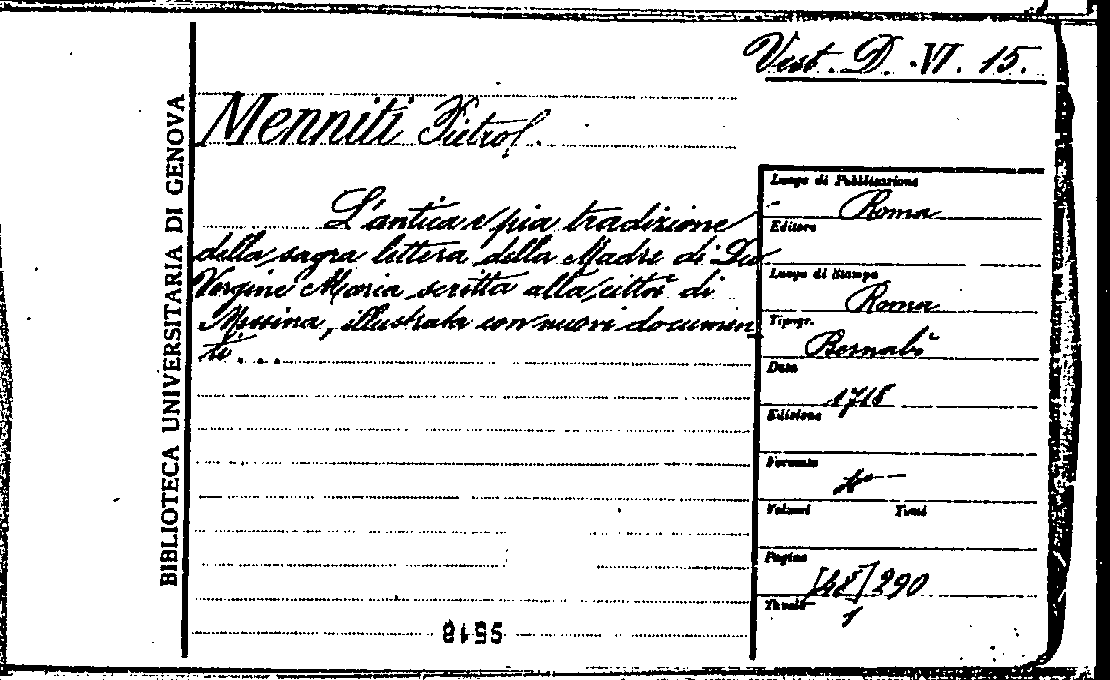 Vest. D. VI. 15.
BIBLIOTECA UNIVERSITARIA DI GENOVA
Menniti Pietro
L'antica e pia tradizione
della sagra lettera della Madre di Dio
Vergine Maria scritta alla città di
Messina, illustrata con nuovi documen
ti...
Luogo di Pubblicazione
Roma
Editore
Luogo di Stampa
Roma
Tipogr.
Bernabò
Data
1718
Edizione
Formato
Volumi Tomi
Pagine
[48] 290
Tavole
1